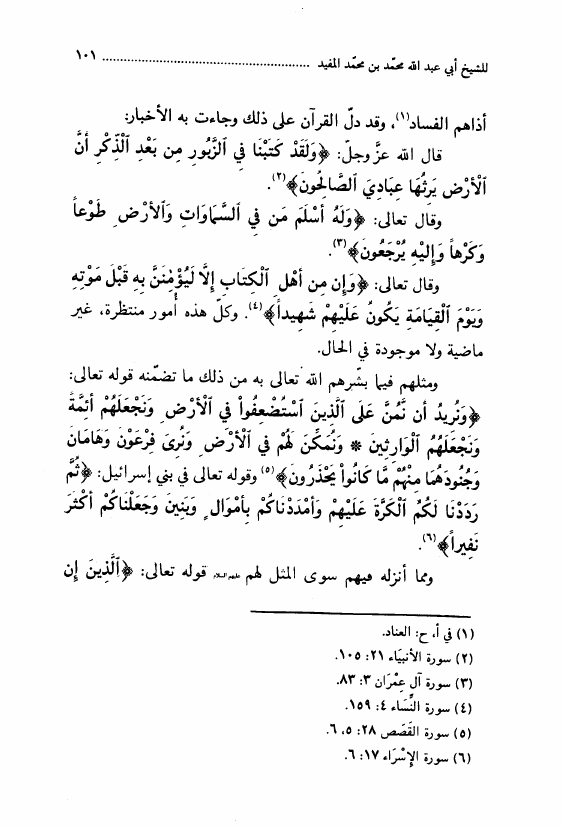 للشيخ أبي عبد الله محمّد بن محمّد المفيد ........................................................ ١٠١
أذاهم الفساد(١)، وقد دلّ القرآن على ذلك وجاءت به الأخبار:
قال الله عزَّ وجلّ: ﴿وَلَقَدْ كَتَبْنَا فِي ٱلزَّبُورِ مِن بَعْدِ ٱلذِّكْرِ أَنَّ
ٱلْأَرْضَ يَرِثُهَا عِبَادِيَ ٱلصَّالِحُونَ﴾(٢).
وقال تعالى: ﴿وَلَهُ أَسْلَمَ مَن فِي ٱلسَّمَاوَاتِ وَٱلأَرْضِ طَوْعاً
وَكَرْهاً وَإِلَيْهِ يُرْجَعُونَ﴾(٣).
وقال تعالى: ﴿وَإِن مِن أَهْلِ ٱلْكتَابِ إِلَّا لَيُؤْمِنَنَّ بِهِ قَبْلَ مَوْتِهِ
وَيَوْمَ ٱلْقِيَامَةِ يَكُونُ عَلَيْهِمْ شَهِيداً﴾(٤). وكلّ هذه أُمور منتظرة، غير
ماضية ولا موجودة في الحال.
ومثلهم فيما بشّرهم الله تعالى به من ذلك ما تضمّنه قوله تعالى:
﴿وَنُرِيدُ أَن نَّمُنَّ عَلَى ٱلَّذِينَ ٱسْتُضْعِفُواْ فِي ٱلْأَرْضِ وَنَجْعَلَهُمْ أَئِمَّةً
وَنَجْعَلَهُمُ ٱلْوَارِثِينَ * وَنُمَكِّنَ لَهُمْ فِي ٱلْأَرْضِ وَنُرِىَ فِرْعَوْنَ وَهَامَانَ
وَجُنُودَهُمَا مِنْهُم مَّا كَانُواْ يَحْذَرُونَ﴾(٥) وقوله تعالى في بني إسرائيل: ﴿ثُمَّ
رَدَدْنَا لَكُمُ ٱلْكَرَّةَ عَلَيْهِمْ وَأَمْدَدْنَاكُم بِأَمْوَالٍ وَبَنِينَ وَجَعَلْنَاكُمْ أَكْثَرَ
نَفِيراً﴾(٦).
ومما أنزله فيهم سوى المثل لهم عليهم السلام قوله تعالى: ﴿ٱلَّذِينَ إِن
(١) في أ، ح: العناد.
(٢) سورة الأنبيَاء ٢١: ١٠٥.
(٣) سورة آل عِمْرَان ٣: ٨٣.
(٤) سورة النِّسَاء ٤: ١٥٩.
(٥) سورة القَصَص ٢٨: ٥، ٦.
(٦) سورة الإِسْرَاء ١٧: ٦.